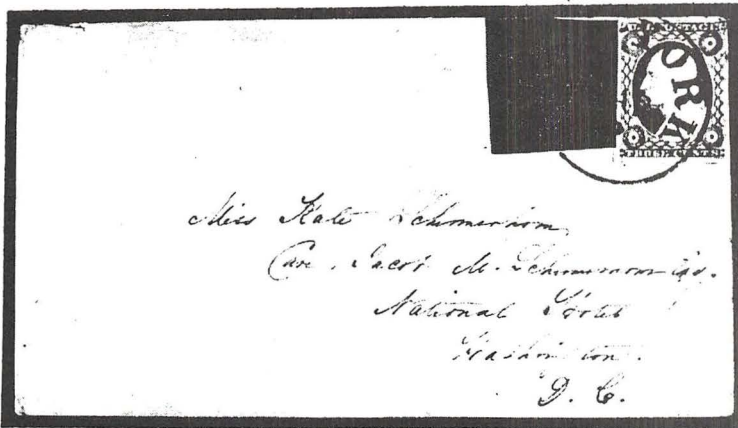 U.S. POSTAGE
YORK
THREE CENTS
Miss Kate Schermerhorn
Care. Jacob M. Schermerhorn Esq.
National Hotel
Washington.
D. C.